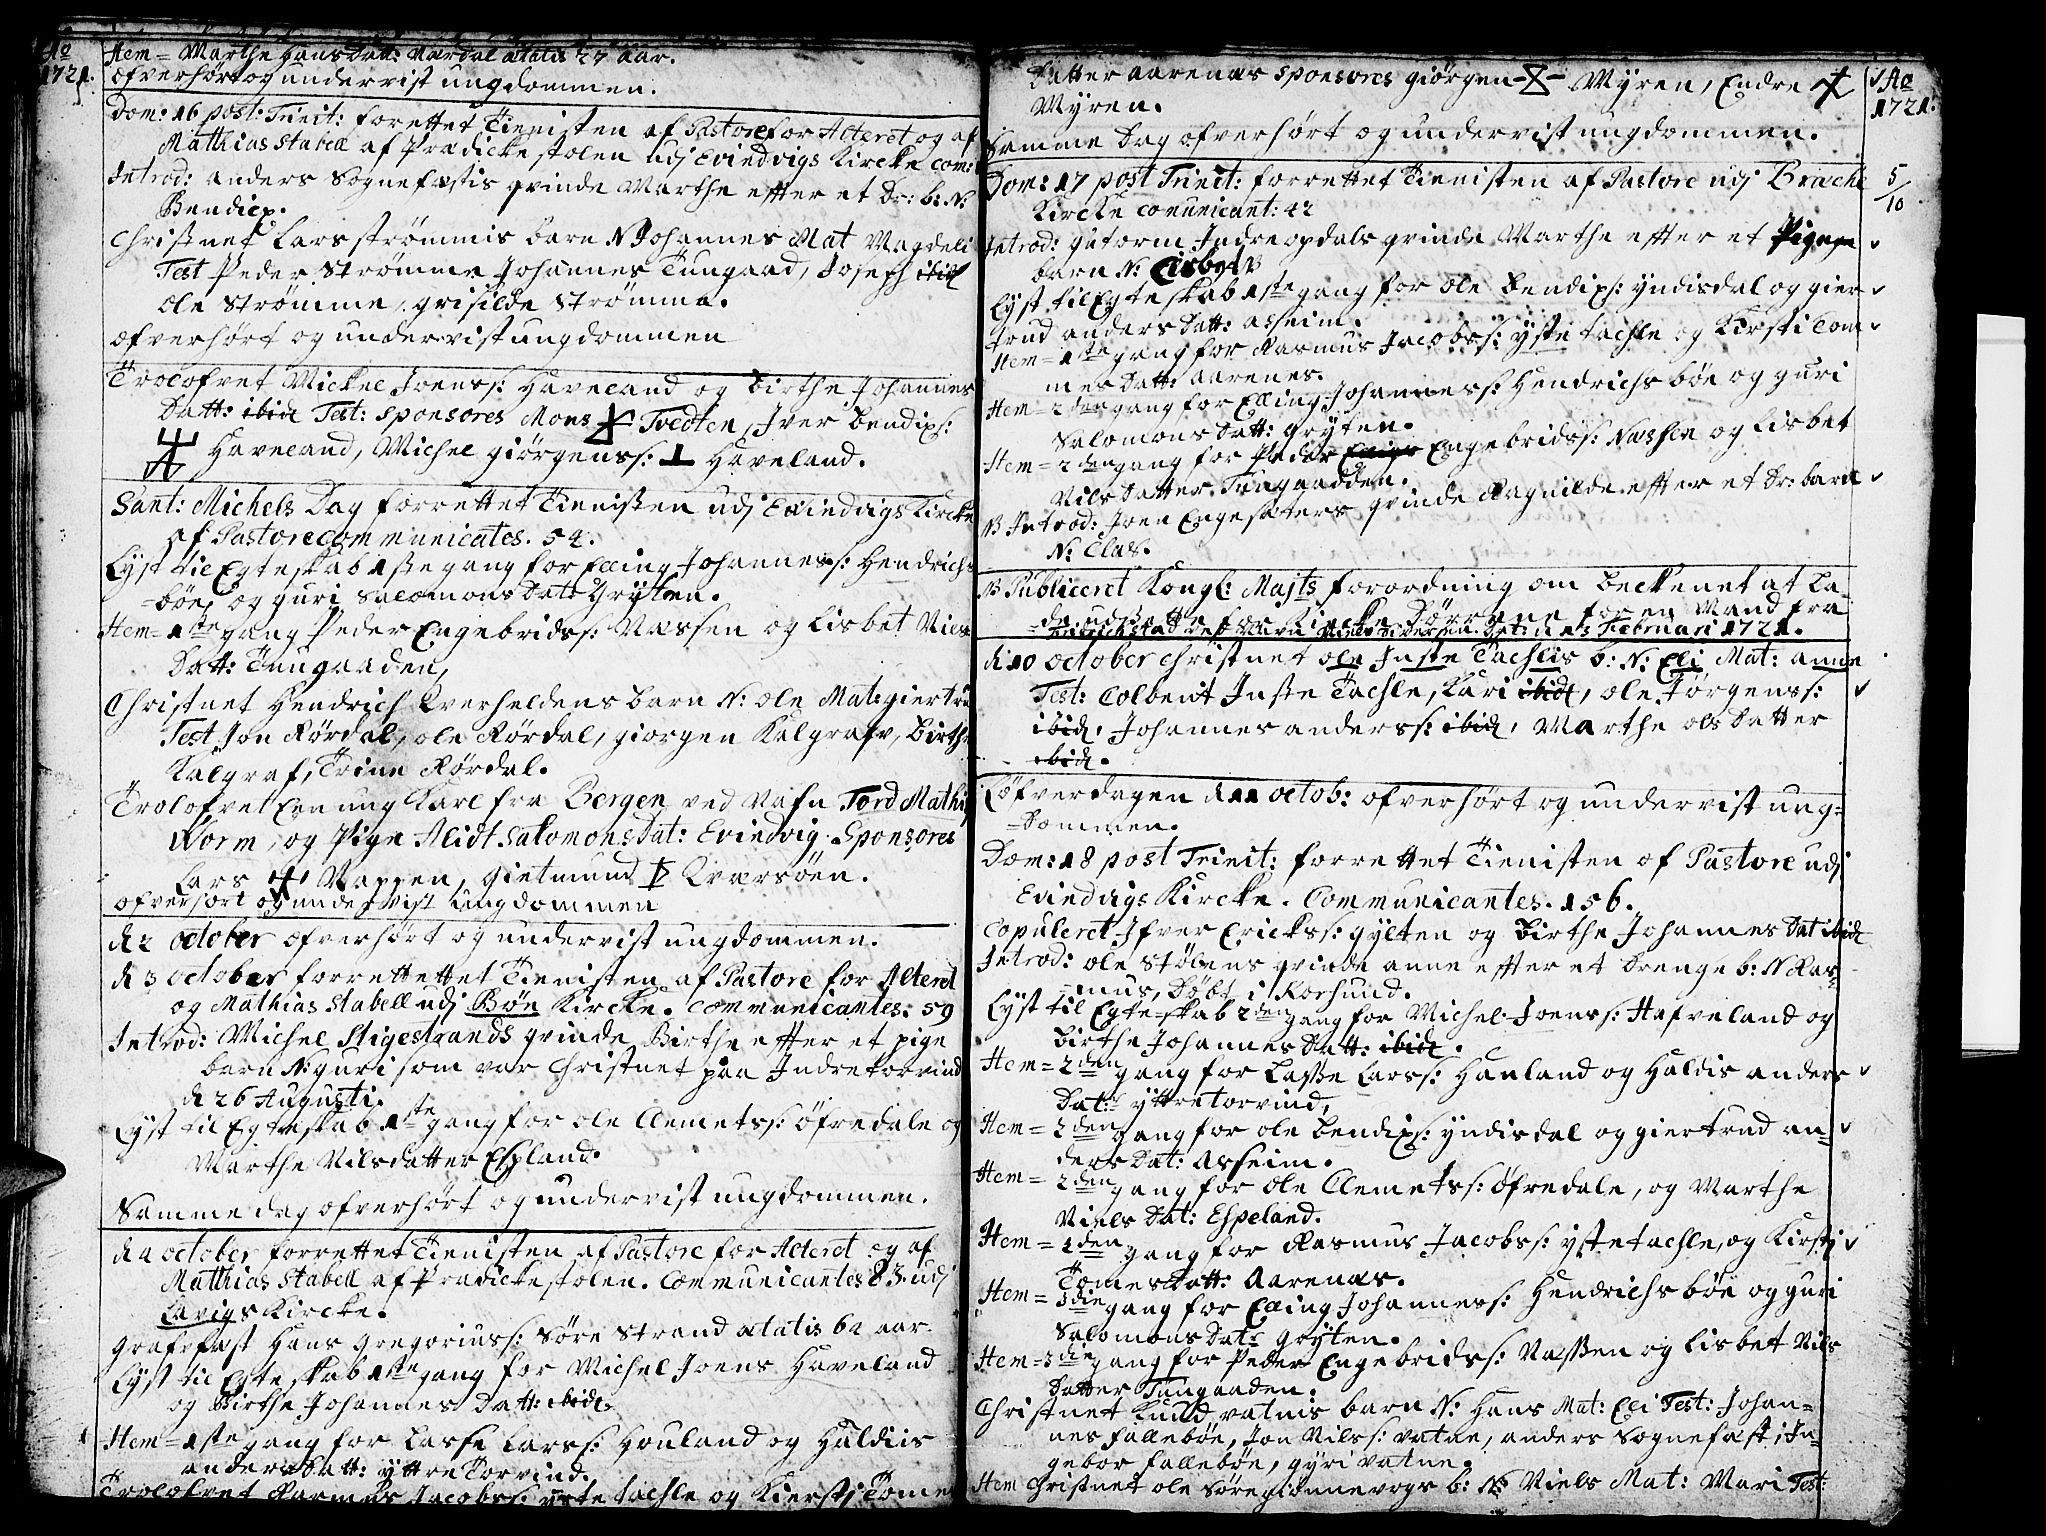 Ao
1721.
Item = Marthe Hans Datt: Nordal ætatis 27 aar.
ofverhørt og undervist ungdommen.
Dom: 16 post: Trinit: forettet Tienisten af Pastore for Alteret og af
Mathias Stabell af Prædickestolen udj Evindvigs Kircke com:
Introd: anders Sognefæstis qvinde Marthe effter et Dr: b: N:
Bendix.
Christnet Lars Strømmis barn N Johannes Mat Magdeli
Test Peder Strømme Johannes Tungaad, Joseph ibid
ole Strømme, grisilde Strømme.
ofverhørt og undervist ungdommen
Trolofvet Mickel Joenss: Haveland og Birthe Johannes
Datt: ibid Test: Sponsores Mons Tvedten, Iver Bendixs:
Haveland, Michel giørgenss: Haveland.
Sant: Michels Dag forrettet Tienisten udj Evindvigs Kircke
af Pastore communicates. 54.
Lyst til Egteskab 1ste gang for Elling Johanness: Hendrichs
=bøe, og guri Salomons Dat: Grÿten.
Item = 1ste gang Peder Engebridss: Næssen og Lisbet Niels
Datt: Tungaaden,
Christnet Hendrich Kverheldens barn N: ole Mat: giertru
Test Jon Rørdal, ole Rørdal, giorgen Kalgrafv, Birthe
Kalgraf, Trine Rørdal.
Trolofvet Een ung Karl fra Bergen ved Nafn Tord Mathi
Worm, og Pige Alidt Salomons Dat: Evindvig. Sponsores
Lars Nappen, gietmund Kværsöen.
ofverhørt og undervist ungdommen
d. 2 october ofverhørt og undervist ungdommen.
d. 3 october forrettettet Tienisten af Pastore for Alteret
og Mathias Stabell udj Bøe Kircke. Communicantes: 59
Introd: Michel Stigestrands qvinde Birthe effter et pige
barn N: guri som var Christnet paa Indretorvind
d. 26 Augusti.
Lyst til Egteskab 1ste gang for ole Clemetss: öfredale og
Marthe Nilsdatter Espland.
Samme dag ofverhørt og undervist ungdommen.
d. 4 october forrettet Tienisten af Pastore for Alteret og af
Mathias Stabell af Prædickestolen. Communicantes 83. udj
Lavigs Kircke.
grafvfæst Hans gregoriuss: Søre Strand ætatis 62 aar.
Lyst til Egteskab 1ste gang for Michel Joens Haveland
og Birthe Johannes Datt: ibid.
Item = 1ste gang for Lasse Larss: Houland og Haldiis
anders Datt: yttre Torvind.
Trolofvet Rasmus Jacobss: yste tachle og Kiersti Tomes
Datter aarenæs sponsores giörgen Myren, Endre
Myren.
Samme Dag ofverhørt og undervist ungdommen.
Ao
1721.
Dom: 17 post Trinit: forrettet Tienisten af Pastore udj Brache
Kircke comunicant: 42
5/10
Introd: gutorm Indreopdals qvinde Marthe effter et Pige
barn N: Lisbeth
Lyst til Egteskab 1ste gang for ole Bendixs: yndisdal og gier
trud anders Datt: asheim.
Item = 1ste gang for Rasmus Jacobss: yste tachle og Kirsti Tom
mes Datt: aarenes.
Item = 2den gang for Elling Johanness: Hendrichsbøe og guri
Salomons Datt: grÿten.
Item = 2den gang for Peder Engebridss: Næssen og Lisbet
Nils Datter Tungaadden.
NB Introd: Joen Engesæters qvinde Ragnilde effter et Dr: barn
N: Clas.
NB Publiceret Kongl: Majts forordning om Beckenet at Sæ-
=de udsatte for Kircke Dørrene for en Mand fra
Februari 1721.
d. 10 october christnet ole Juste Tachlis b: N: Eli Mat: anne
Test: Colbent Juste Tachle, Kari ibid, ole Jörgenss:
ibid, Johannes anderss: ibid, Marthe ols Datter
ibid.
Löfverdagen d. 11 octob: ofverhørt og undervist ung=
=dommen.
Dom: 18 post Trinit: forrettet Tienisten af Pastore udj
Evindvigs Kircke. Communicantes. 156.
Copuleret Ifver Erickss: gÿlten og Birthe Johannes Dat ibid
Introd: ole Stølens qvinde anne effter et Drenge b: N Ras=
=mus, Døbt i Korsund.
Lyst til Egte=skab 2den gang for Michel Joenss: Hafveland og
Birthe Johannes Datt: ibid.
Item = 2den gang for Lasse Larss: Hauland og Haldis anders
Dat: ÿttretorvind,
Item = 2den gang for ole Bendixs: ÿndisdal og giertrud an=
ders Dat: Asheim.
Item = 2den gang for ole Clemetss: öfredale, og Marthe
Niels Dat: Espeland.
Item = 2den gang for Rasmus Jacobss: ystetachle, og Kirstj
Tomes Datt: Aarenæs.
Item = 3die gang for Elling Johanness: Hendrichsbøe og guri
Salomons Dat: grÿten.
Item = 3die gang for Peder Engebridss: Næssen og Lisbet Nils
Datter Tungaaden.
Christnet Knud vatnis barn N: Hans Mat: Eli Test: Johan=
nes fallebøe, Jon Nilss: vatne, anders Sognefæst, In=
gebor fallebøe, gÿri vatne.
Item Christnet ole Søregionnevogs b: N: Niels Mat: Mari Test: